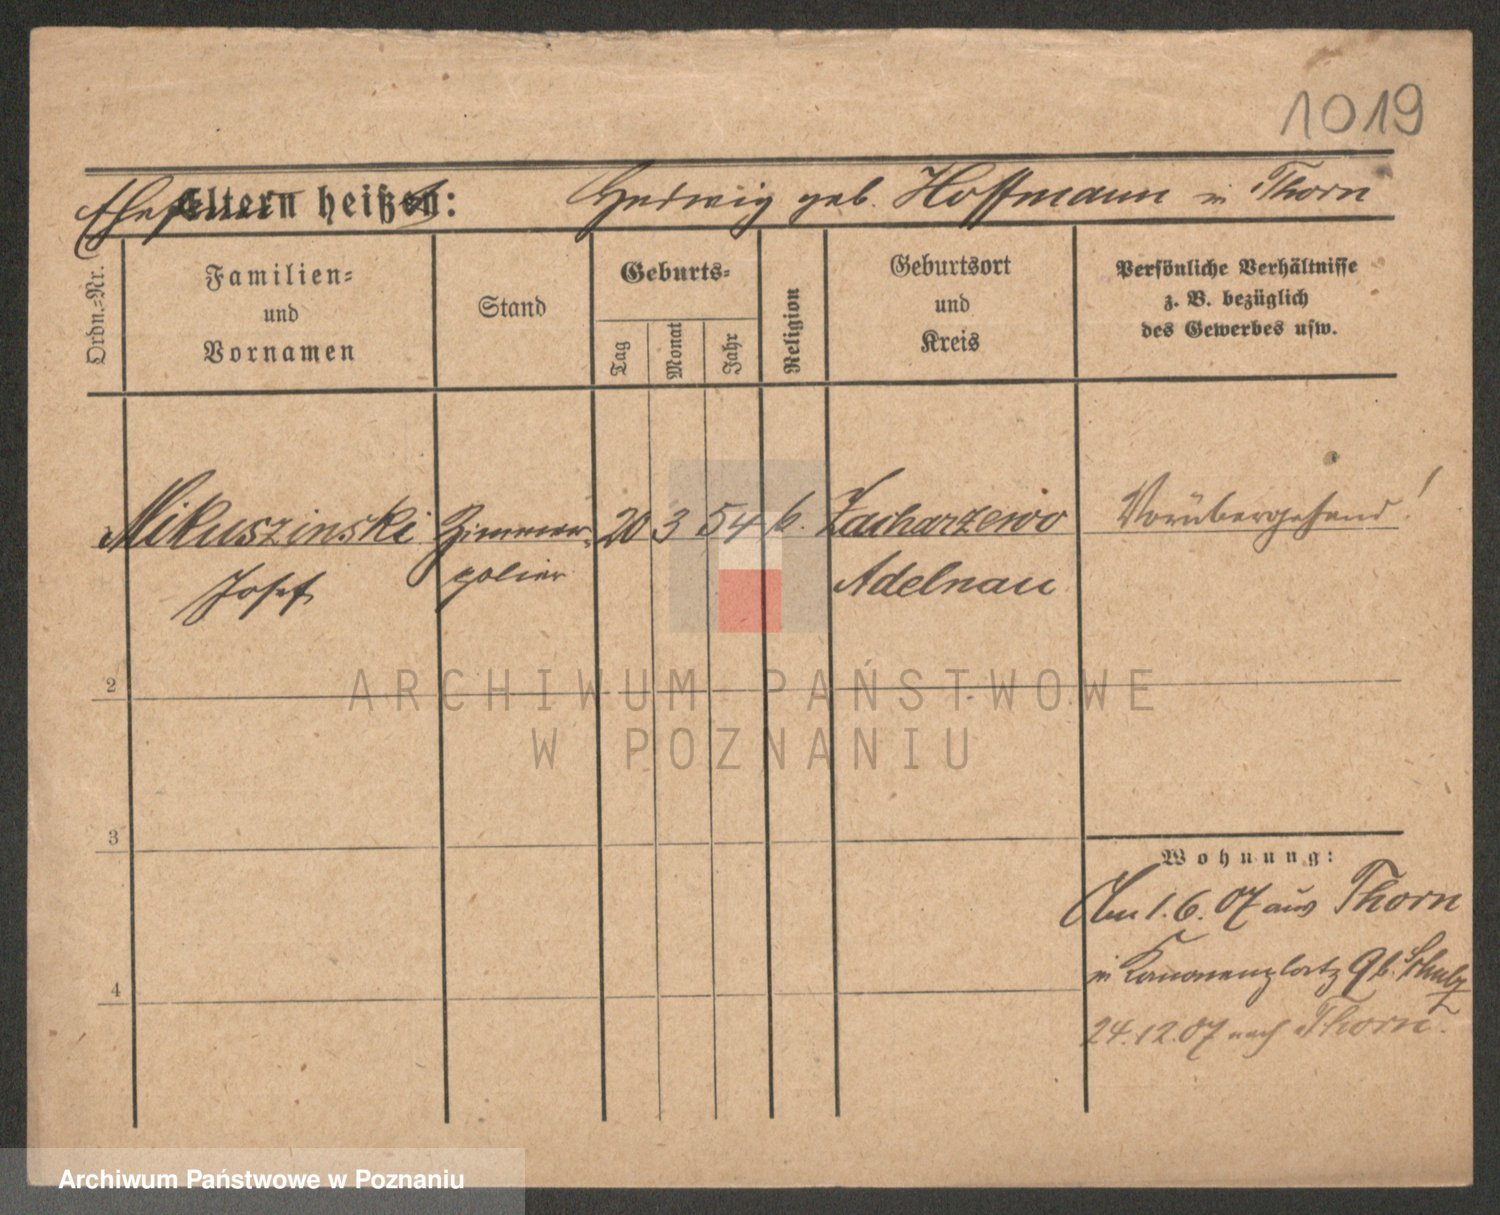 1019
Ehefrau heißt: Hedwig geb. Hoffmann in Thorn
Ältern heißen:
Ordn.-Nr.
Familien- und Vornamen
Stand
Geburts-
Tag
Monat
Jahr
Religion
Geburtsort und Kreis
Persönliche Verhältnisse
z. B. bezüglich
des Gewerbes usw.
Mikuszinski Zimmer- 20 3 54 k. Zacharzewo Vorübergehend!
Josef polier Adelnau
2
ARCHIWUM PAŃSTWOWE
W POZNANIU
3
Wohnung:
Am 1.6.07 aus Thorn
in Kanonenplatz 9 b. Schulz
4
24.12.07 nach Thorn.
Archiwum Państwowe w Poznaniu